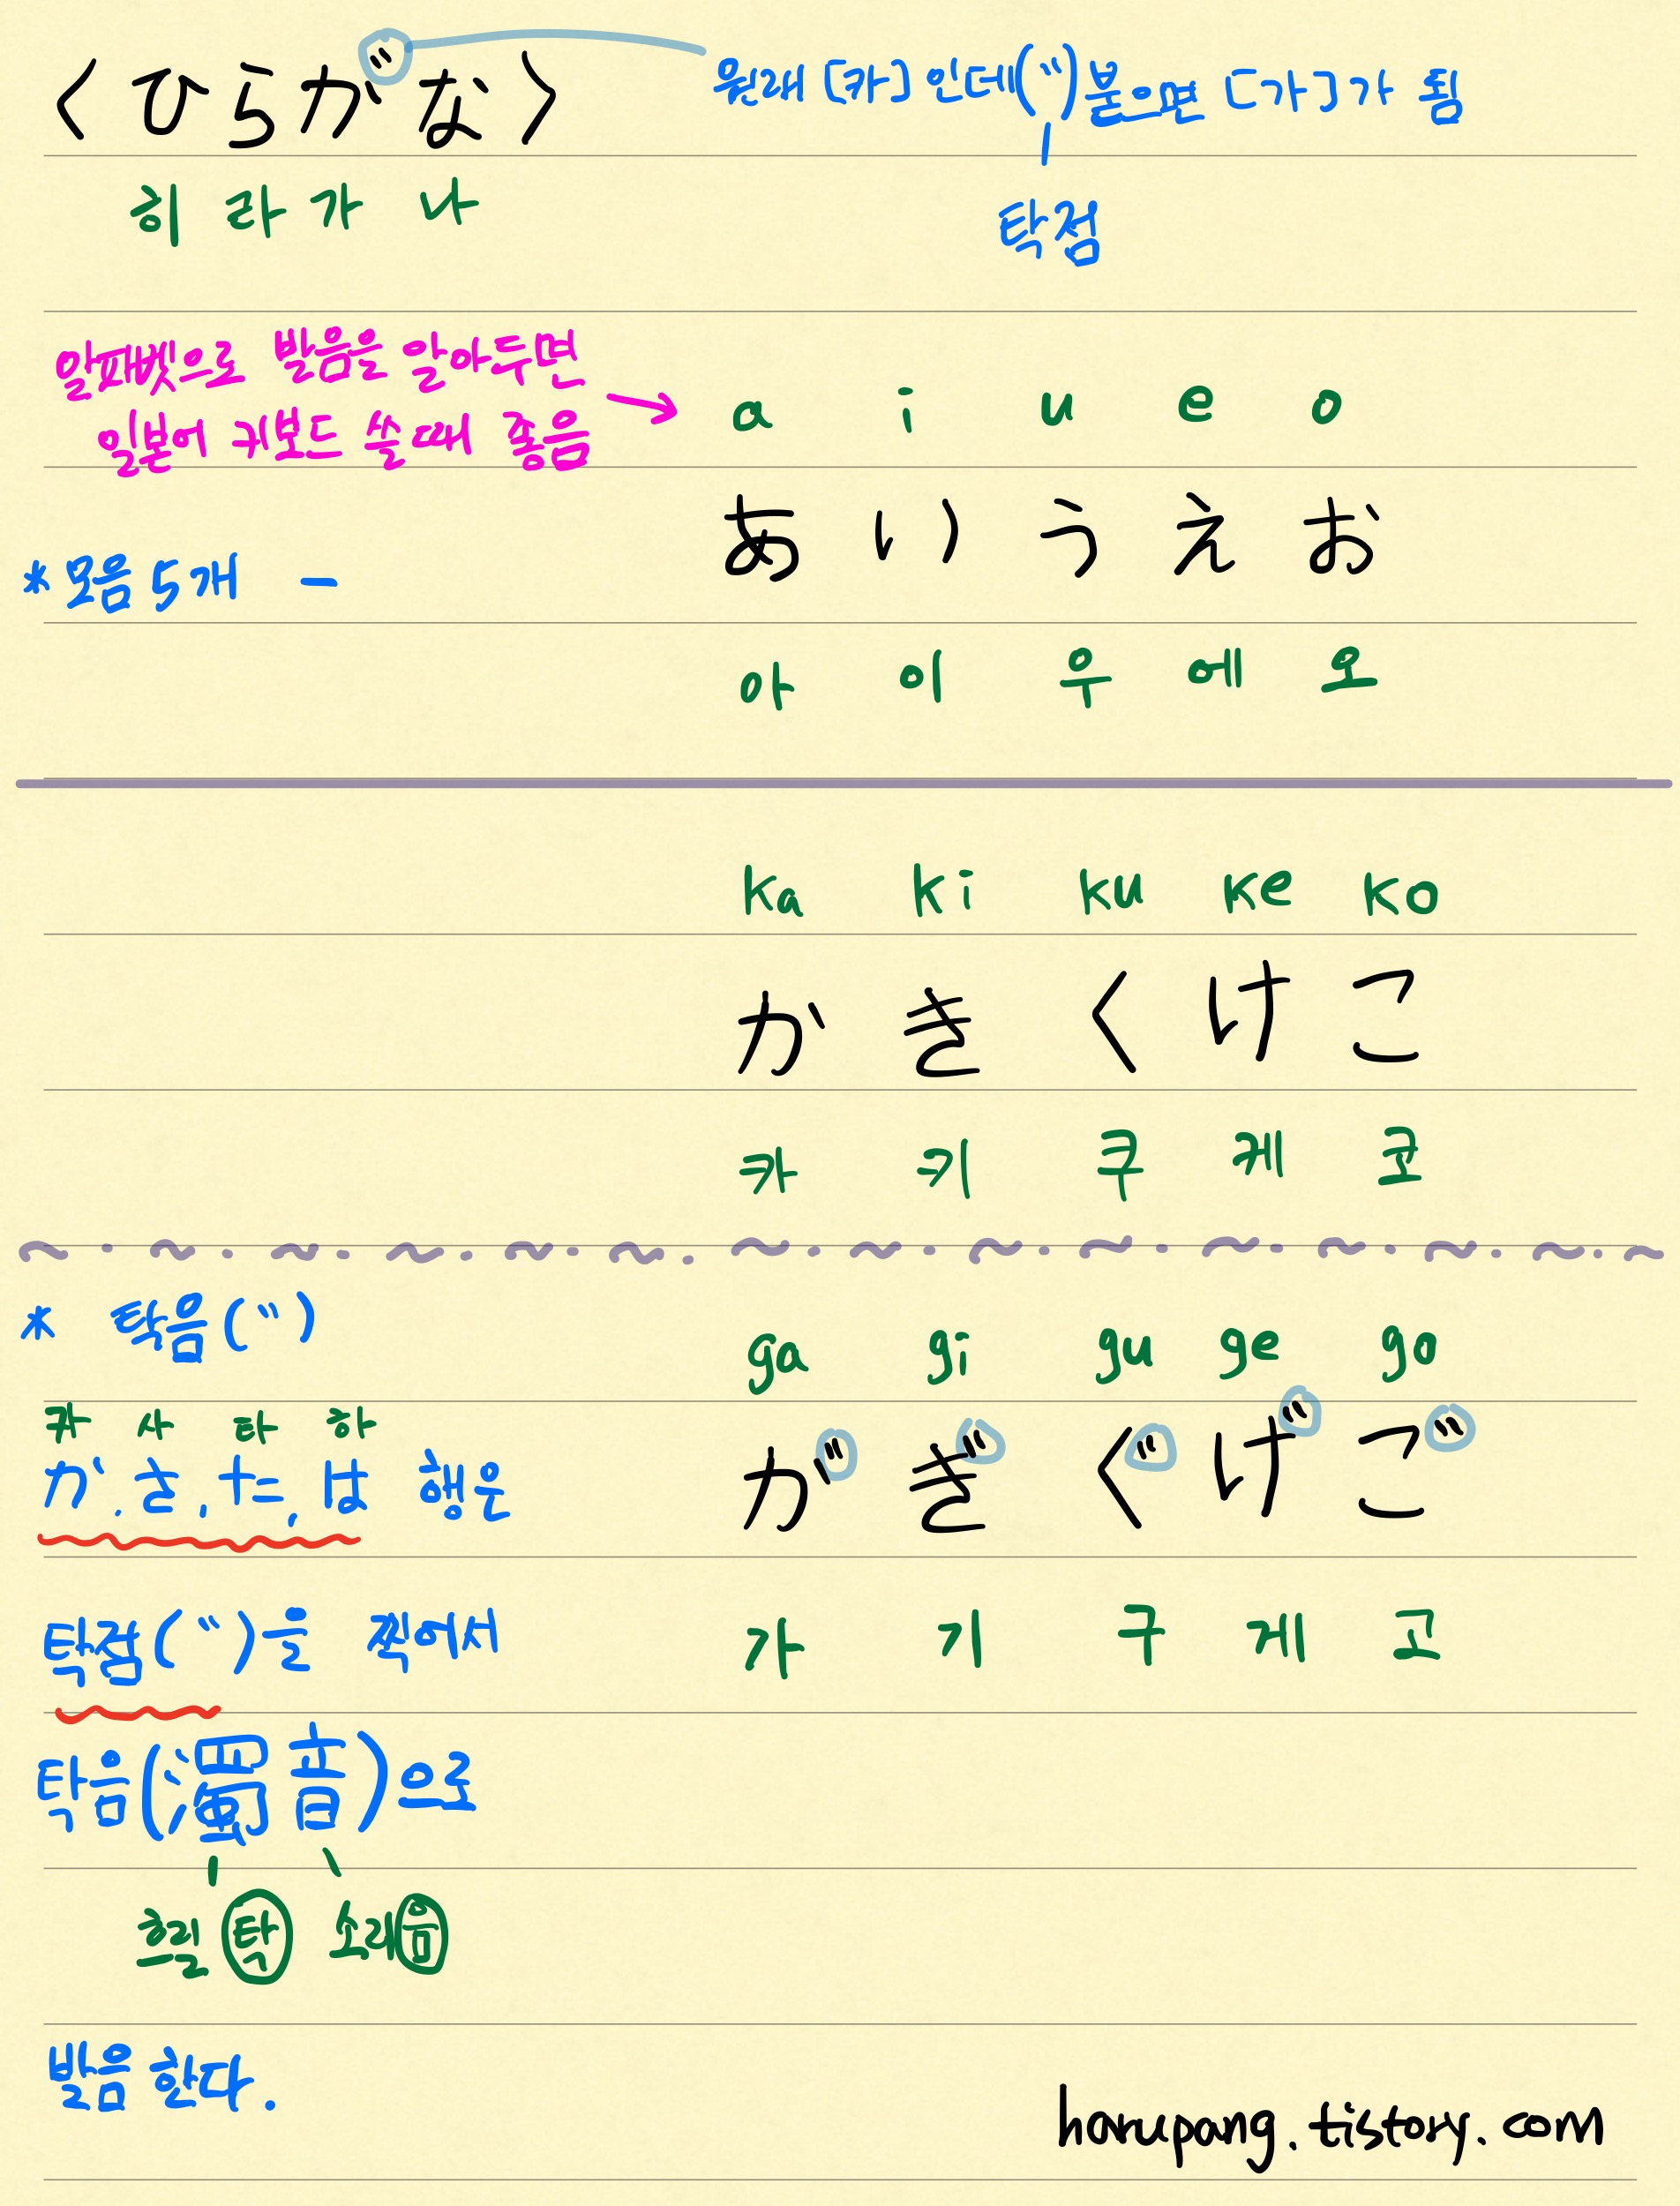 <ひらがな>
원래 [카]인데(゛)붙으면 [가]가 됨
히 라 가 나
탁점
알파벳으로 발음을 알아두면
일본어 키보드 쓸 때 좋음 →
a i u e o
あ い う え お
*모음 5개 -
아 이 우 에 오
ka ki ku ke ko
か き く け こ
카 키 쿠 케 코
* 탁음(゛)
ga gi gu ge go
카 사 타 하
か, さ, た, は 행은
が ぎ ぐ げ ご
탁점(゛)을 찍어서
가 기 구 게 고
탁음(濁音)으로
흐릴 탁 소리 음
발음한다.
harupang.tistory.com